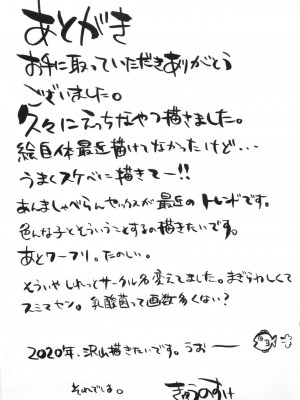 あとがき
お手に取っていただきありがとう
ございました。
久々にえっちなやつ描きました。
絵自体最近描けてなかったけど…
うまくスケベに描きてー!!
あんましゃべらんセックスが最近のトレンドです。
色んな子とそういうことするの描きたいです。
あとフーフリ。たのしい。
そういやしれっとサークル名変えてました。まぎらわしくて
スミマセン。乳酸菌って画数多くない?
2020年、沢山描きたいです。うおー
それでは。
きゅうのすけ